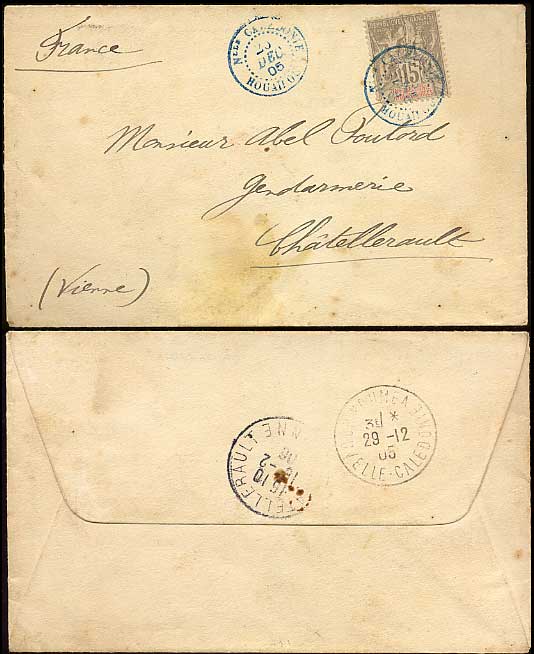 France
Nlle CALÉDONIE
DEC
05
HOUAILOU
15
Nlle CALÉDONIE
HOUAILOU
Monsieur Abel Poutord
Gendarmerie
Châtellerault
(Vienne)
NOUMEA
3E *
29 -12
05
NVELLE-CALEDONIE
CHATELLERAULT VIENNE
15 10
-2
06